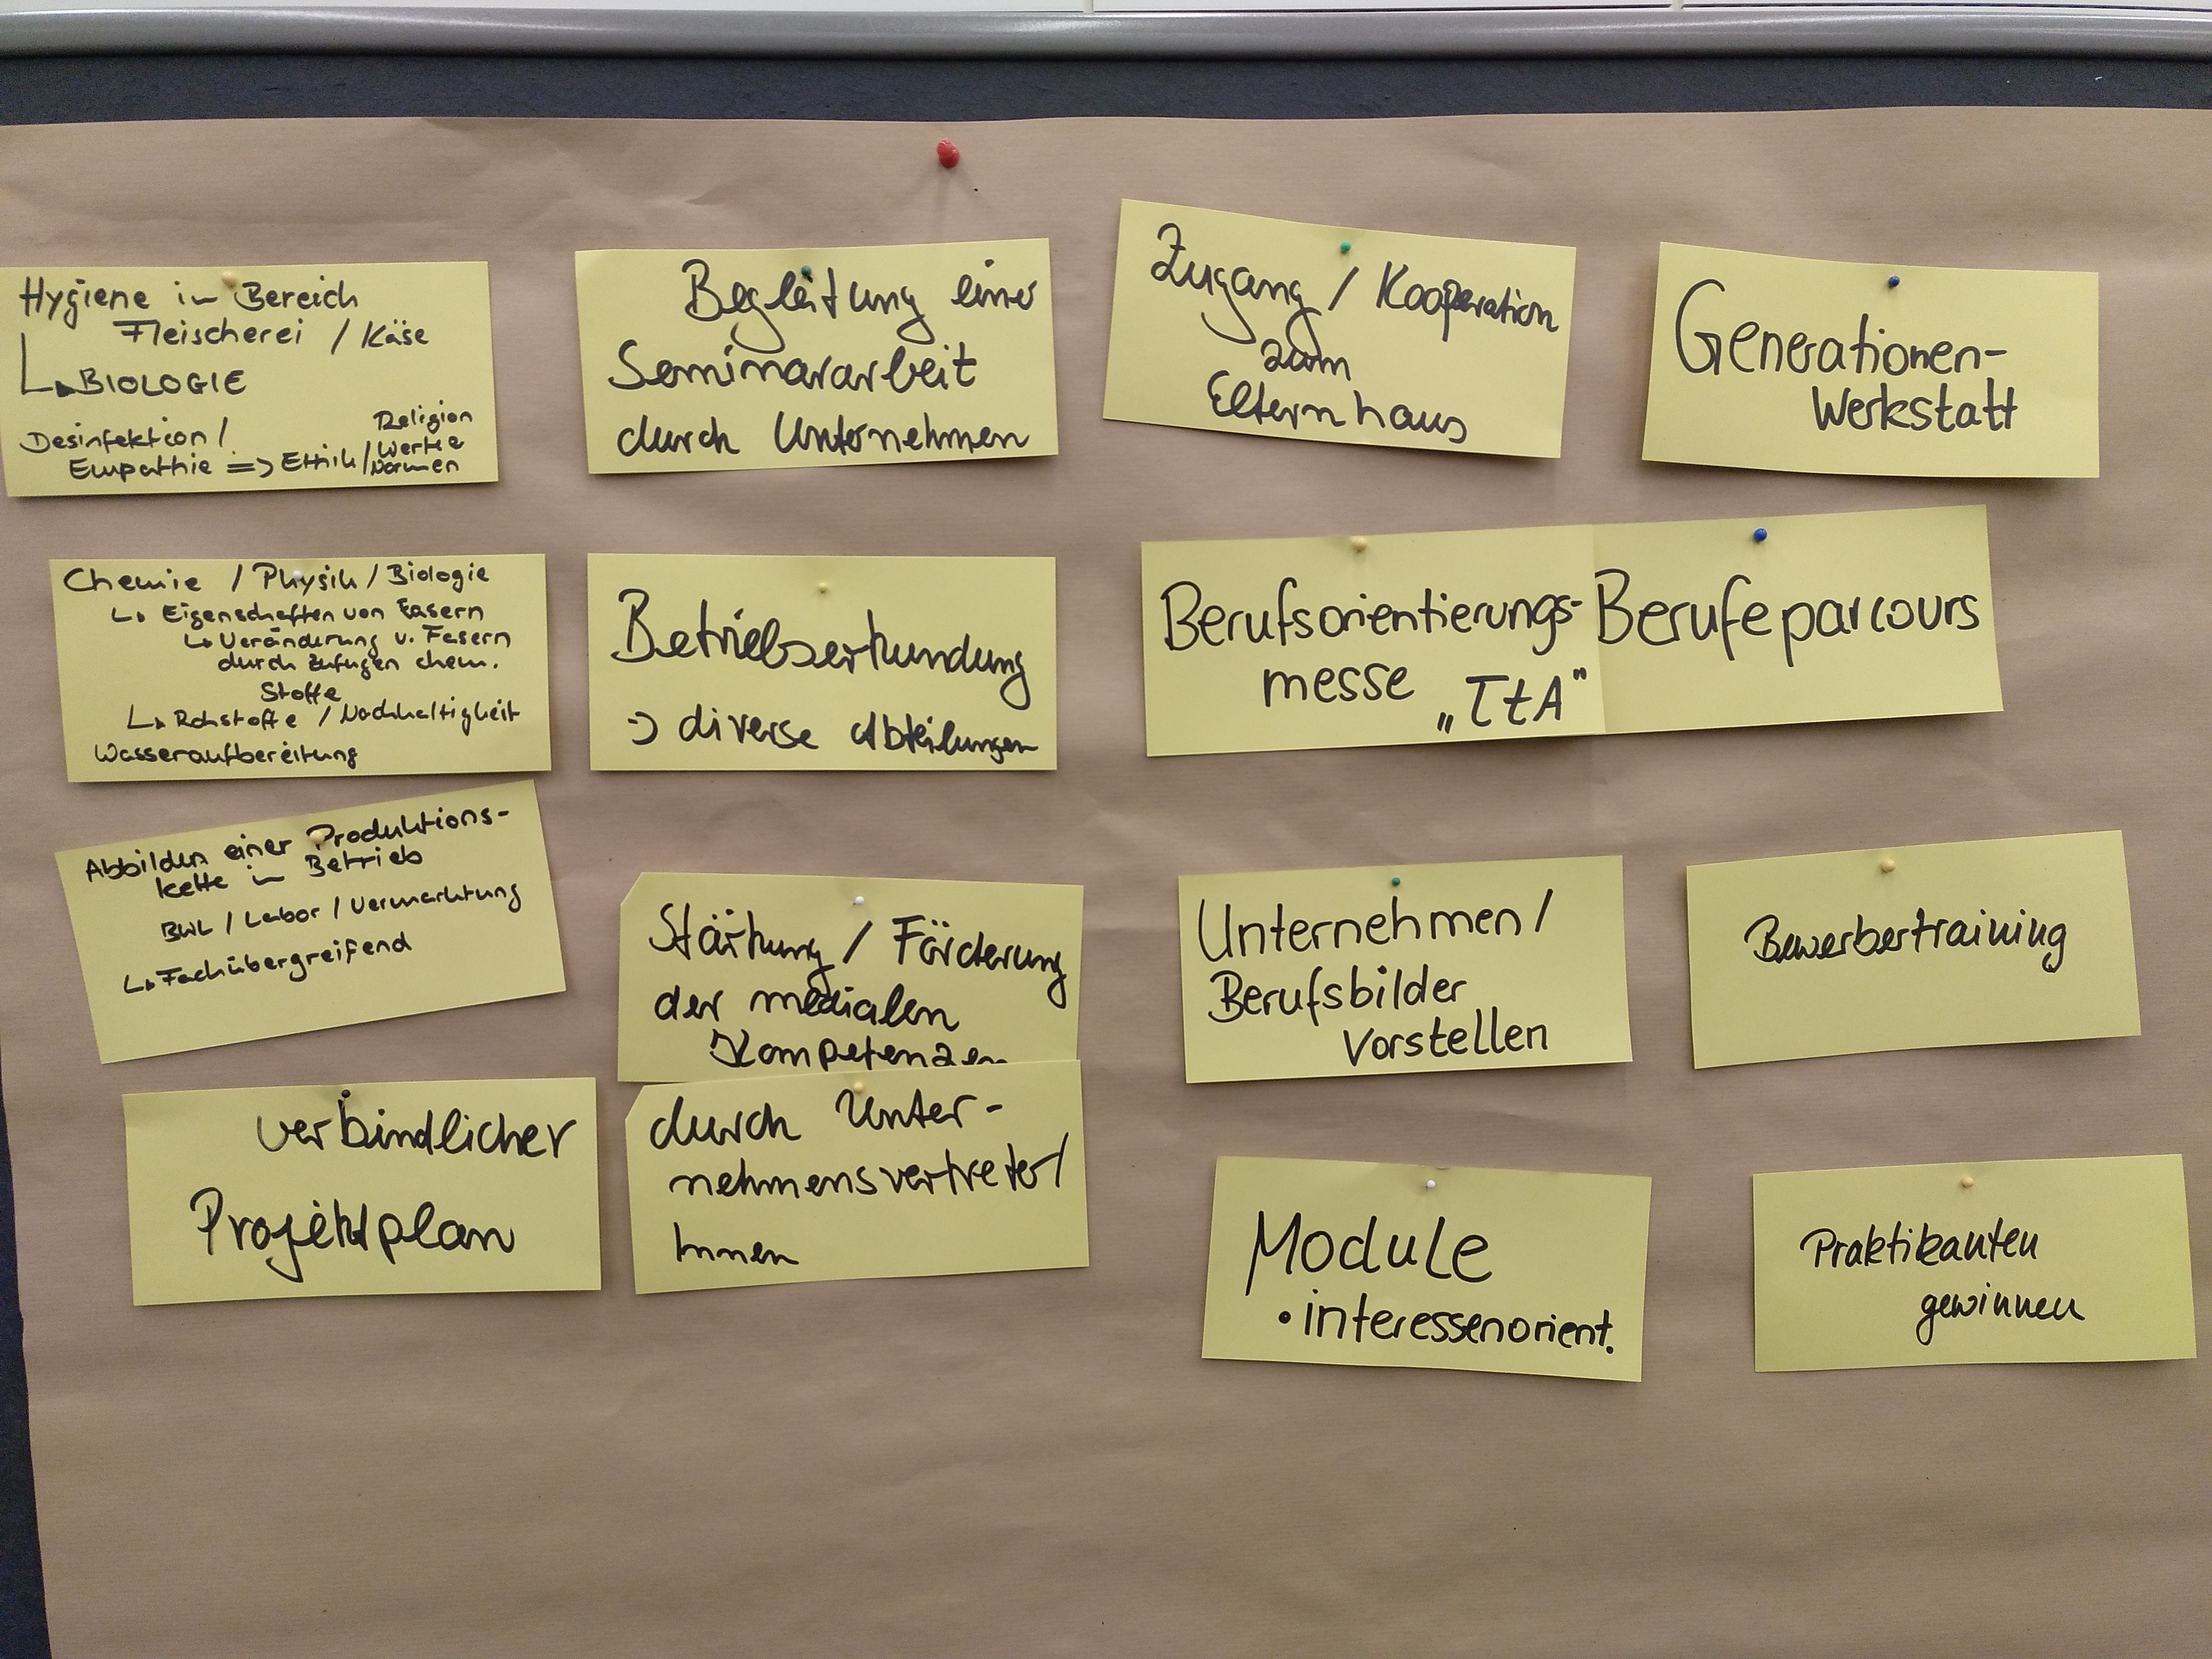 Hygiene im Bereich
Fleischerei / Käse
↳ BIOLOGIE
Desinfektion /
Empathie => Ethik / Religion
Werte
Normen
Begleitung einer
Seminararbeit
durch Unternehmen
Zugang / Kooperation
zum
Elternhaus
Generationen-
Werkstatt
Chemie / Physik / Biologie
↳ Eigenschaften von Fasern
↳ Veränderung v. Fasern
durch Zufügen chem.
Stoffe
↳ Rohstoffe / Nachhaltigkeit
Wasseraufbereitung
Betriebserkundung
→ diverse Abteilungen
Berufsorientierungs-
messe „TtA"
Berufeparcours
Abbilden einer Produktions-
kette im Betrieb
BWL / Labor / Vermarktung
↳ Fachübergreifend
Stärkung / Förderung
der medialen
Kompetenzen
durch Unter-
nehmensvertreter/
Innen
Unternehmen /
Berufsbilder
vorstellen
Bewerbertraining
verbindlicher
Projektplan
Module
• interessenorient.
Praktikanten
gewinnen